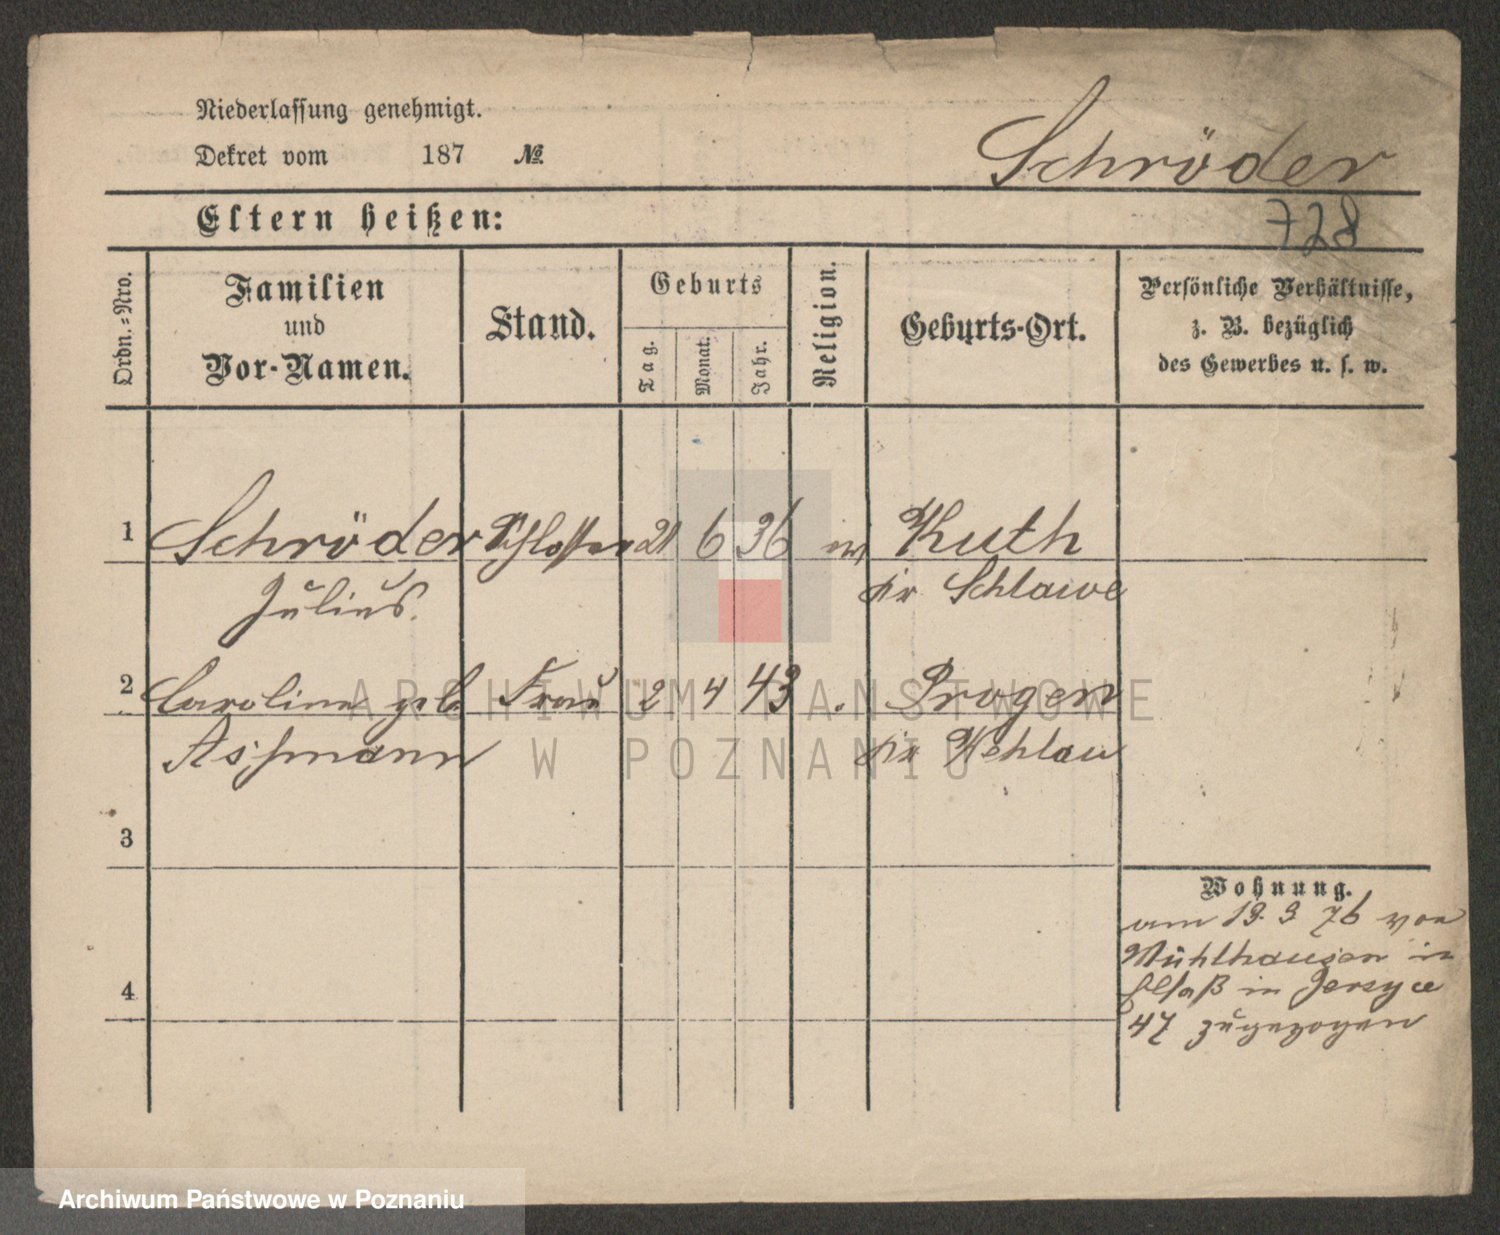 Niederlassung genehmigt.
Dekret vom 187 №
Schröder
Eltern heißen:
728
Ordn.-Nro.
Familien
und
Vor-Namen.
Stand.
Geburts
Tag.
Monat.
Jahr.
Religion.
Geburts-Ort.
Persönliche Verhältnisse,
z. B. bezüglich
des Gewerbes u. s. w.
1 Schröder Schlosser 21 6 36 ev Kuth
Julius. Kr Schlawe
2 Caroline geb. Frau 2 4 43 Progen
Assmann Kr Wehlau
3
Wohnung.
am 19. 9. 76 von
Mühlhausen in
4
Elsaß in Jersyce
47 zugezogen
ARCHIWUM PAŃSTWOWE
W POZNANIU
Archiwum Państwowe w Poznaniu